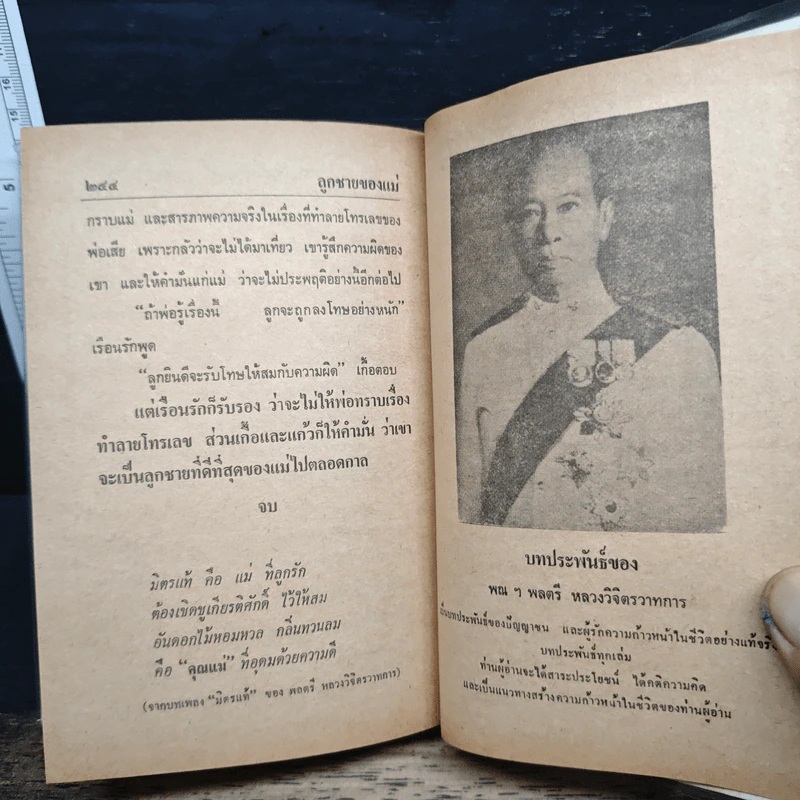 ๒๔๔ ลูกชายของแม่
กราบแม่ และสารภาพความจริงในเรื่องที่ทำลายโทรเลขของ
พ่อเสีย เพราะกลัวว่าจะไม่ได้มาเที่ยว เขารู้สึกความผิดของ
เขา และให้คำมั่นแก่แม่ ว่าจะไม่ประพฤติอย่างนี้อีกต่อไป
“ถ้าพ่อรู้เรื่องนี้ ลูกจะถูกลงโทษอย่างหนัก”
เรือนรักพูด
“ลูกยินดีจะรับโทษให้สมกับความผิด” เกื้อตอบ
แต่เรือนรักก็รับรอง ว่าจะไม่ให้พ่อทราบเรื่อง
ทำลายโทรเลข ส่วนเกื้อและแก้วก็ให้คำมั่น ว่าเขา
จะเป็นลูกชายที่ดีที่สุดของแม่ไปตลอดกาล
จบ
มิตรแท้ คือ แม่ ที่ลูกรัก
ต้องเชิดชูเกียรติศักดิ์ ไว้ให้สม
อันดอกไม้หอมหวล กลิ่นทวนลม
คือ “คุณแม่” ที่อุดมด้วยความดี
(จากบทเพลง “มิตรแท้” ของ พลตรี หลวงวิจิตรวาทการ)
บทประพันธ์ของ
พณ ๆ พลตรี หลวงวิจิตรวาทการ
เป็นบทประพันธ์ของปัญญาชน และผู้รักความก้าวหน้าในชีวิตอย่างแท้จริง
บทประพันธ์ทุกเล่ม
ท่านผู้อ่านจะได้สาระประโยชน์ ได้คติความคิด
และเป็นแนวทางสร้างความก้าวหน้าในชีวิตของท่านผู้อ่าน
16
15
5